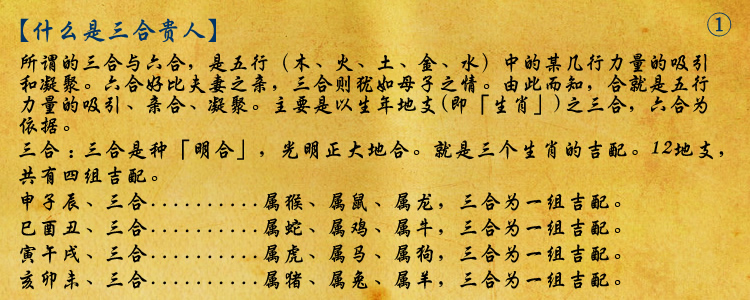 【什么是三合贵人】 ①
所谓的三合与六合，是五行（木、火、土、金、水）中的某几行力量的吸引
和凝聚。六合好比夫妻之亲，三合则犹如母子之情。由此而知，合就是五行
力量的吸引、亲合、凝聚。主要是以生年地支(即「生肖」)之三合，六合为
依据。
三合：三合是种「明合」，光明正大地合。就是三个生肖的吉配。12地支，
共有四组吉配。
申子辰、三合...........属猴、属鼠、属龙，三合为一组吉配。
巳酉丑、三合...........属蛇、属鸡、属牛，三合为一组吉配。
寅午戌、三合...........属虎、属马、属狗，三合为一组吉配。
亥卯未、三合...........属猪、属兔、属羊，三合为一组吉配。